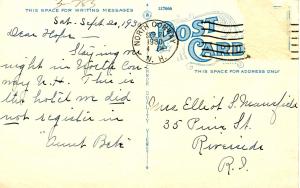 THIS SPACE FOR WRITING MESSAGES
Sat. Sept. 20, 1930
Dear Hope-
Staying
night in North Con-
way N.H. This is
the hotel we did
not register in
"Aunt Bek"
117666
POST
CARD
NORTH CONWAY
1930
N.H.
THIS SPACE FOR ADDRESS ONLY
Mrs Elliot S. Mansfield
35 Pine St.
Riverside
R.I.